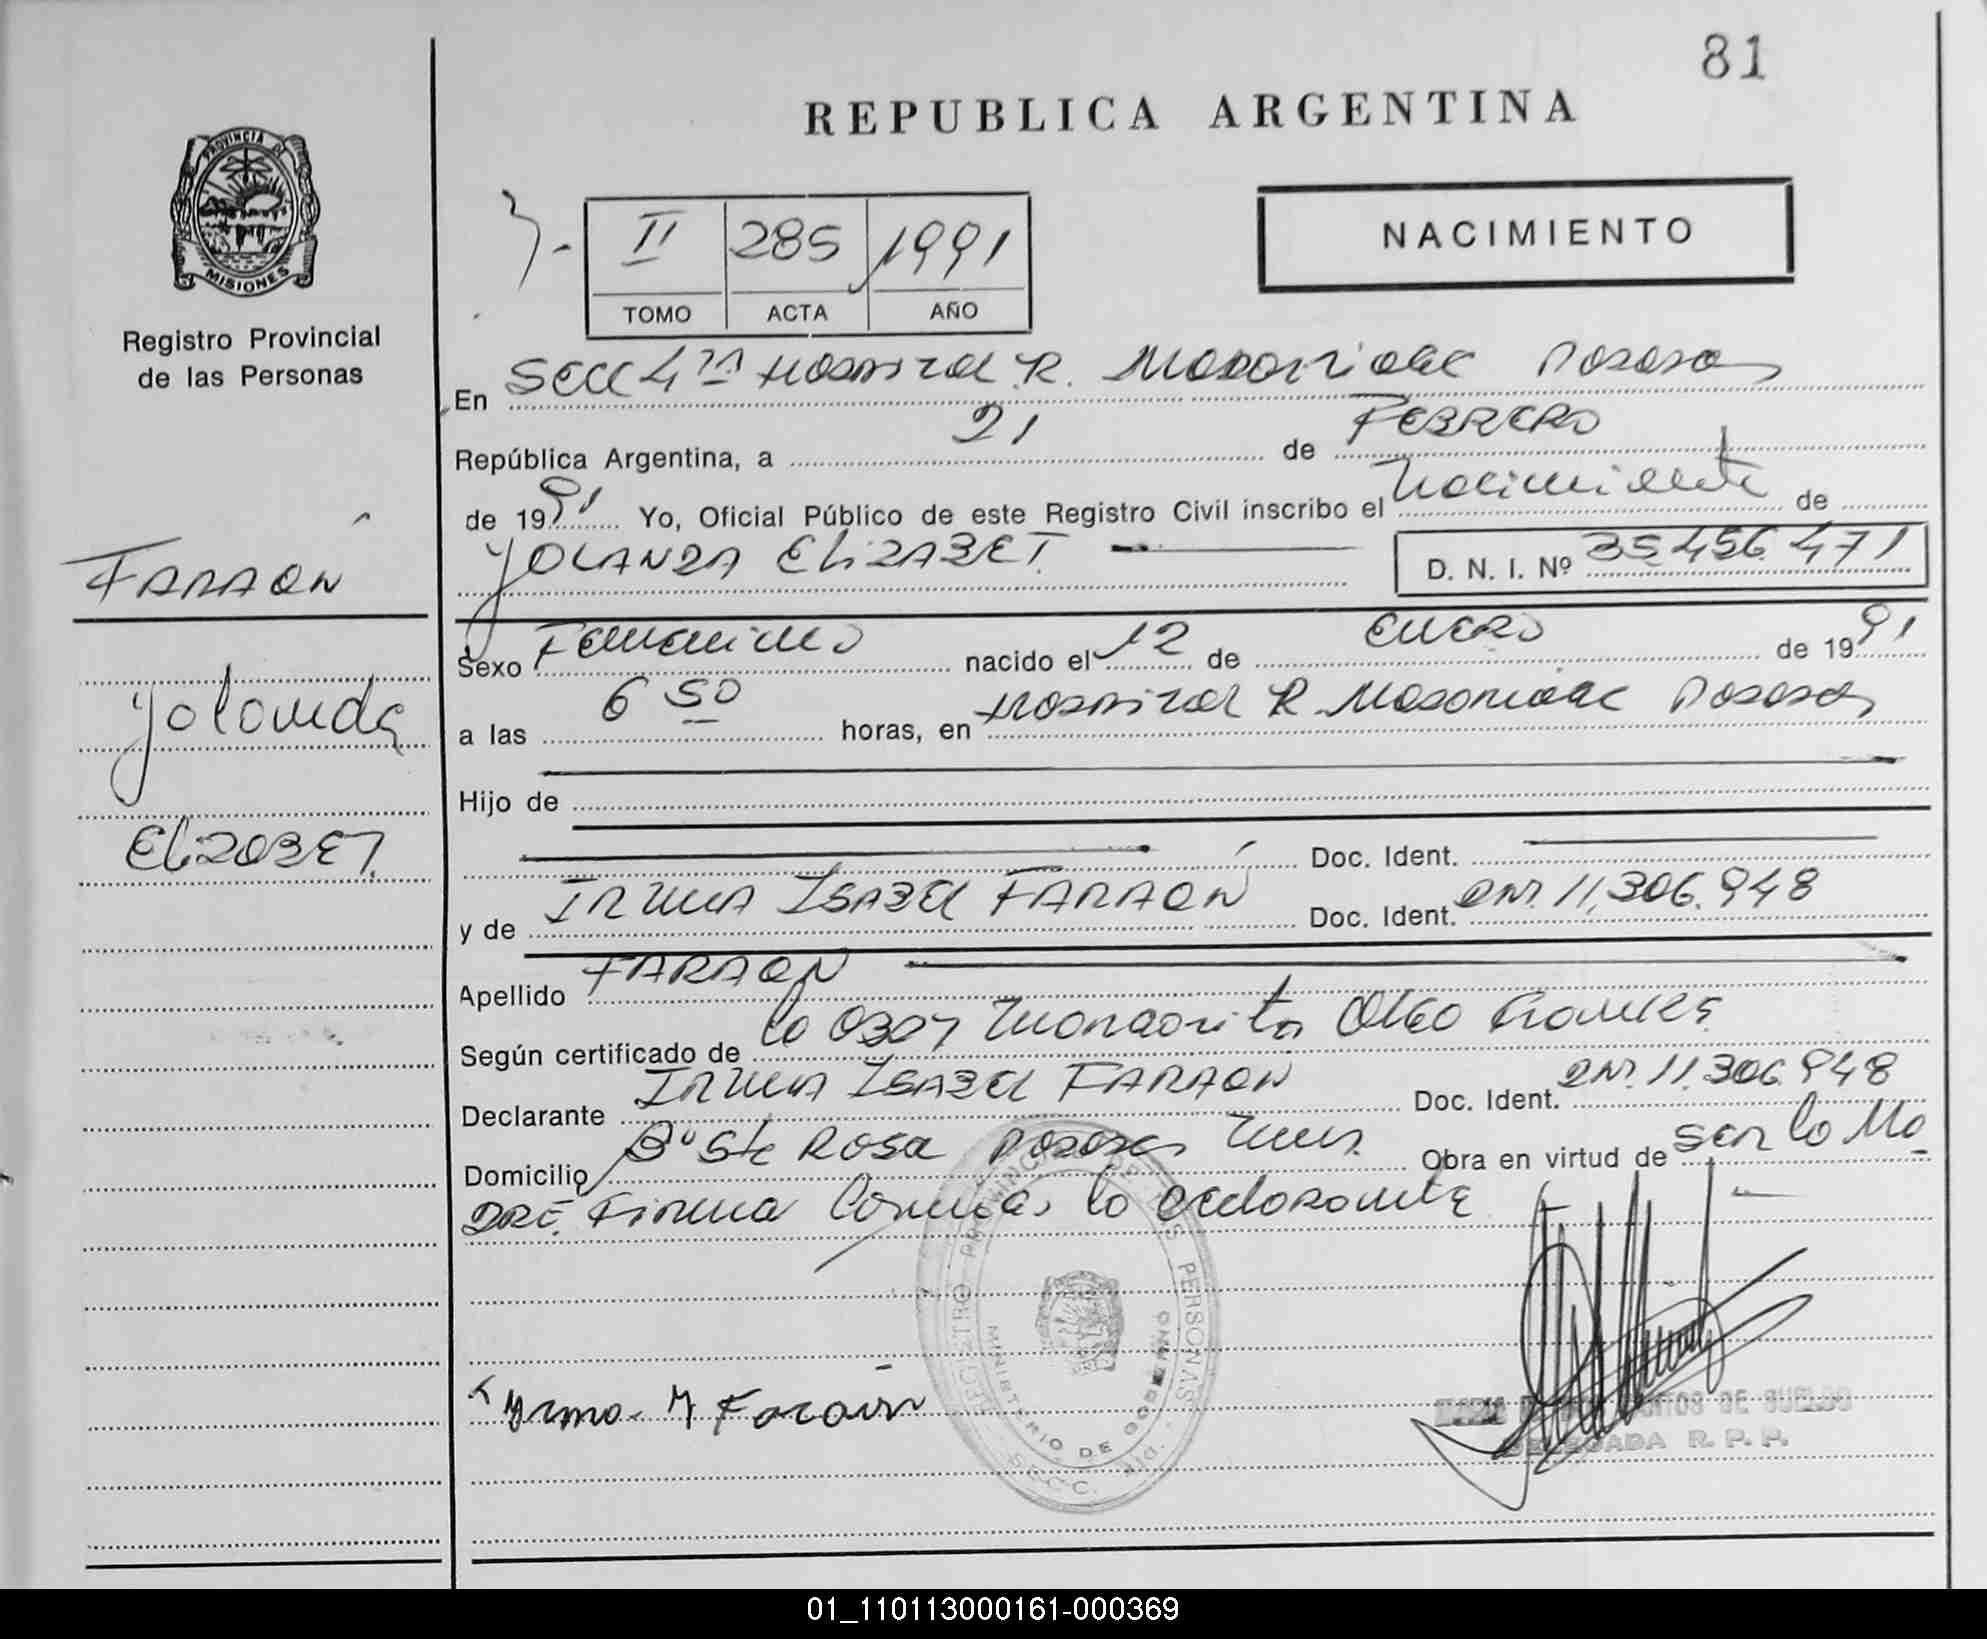 81
REPUBLICA ARGENTINA
PROVINCIA DE
MISIONES
Registro Provincial
de las Personas
II 285 1991
TOMO ACTA AÑO
NACIMIENTO
En Secc 4ta Hospital R. Madariaga Posadas
República Argentina, a 21 de FEBRERO
de 1991 Yo, Oficial Público de este Registro Civil inscribo el nacimiento de
YOLANDA ELIZABET. D. N. I. Nº 35.456.471
FARAÓN
Yolanda
ELIZABET.
Sexo Femenino nacido el 12 de ENERO de 1991
a las 6 50 horas, en Hospital R. Madariaga Posadas
Hijo de
Doc. Ident.
y de IRMA ISABEL FARAÓN Doc. Ident. DNI. 11.306.948
Apellido FARAON
Según certificado de la Obst Margarita Olga
Declarante IRMA ISABEL FARAON Doc. Ident. DNI. 11.306.948
Domicilio Bº Sta Rosa Posadas Mnes. Obra en virtud de ser la Ma
DRE. Firma Conmigo la declarante
REGISTRO PROVINCIAL DE LAS PERSONAS
MINISTERIO DE GOBIERNO
SECC.
Yrma. Y Faraón
DE SUELDO
DELEGADA R. P. P.
01_110113000161-000369